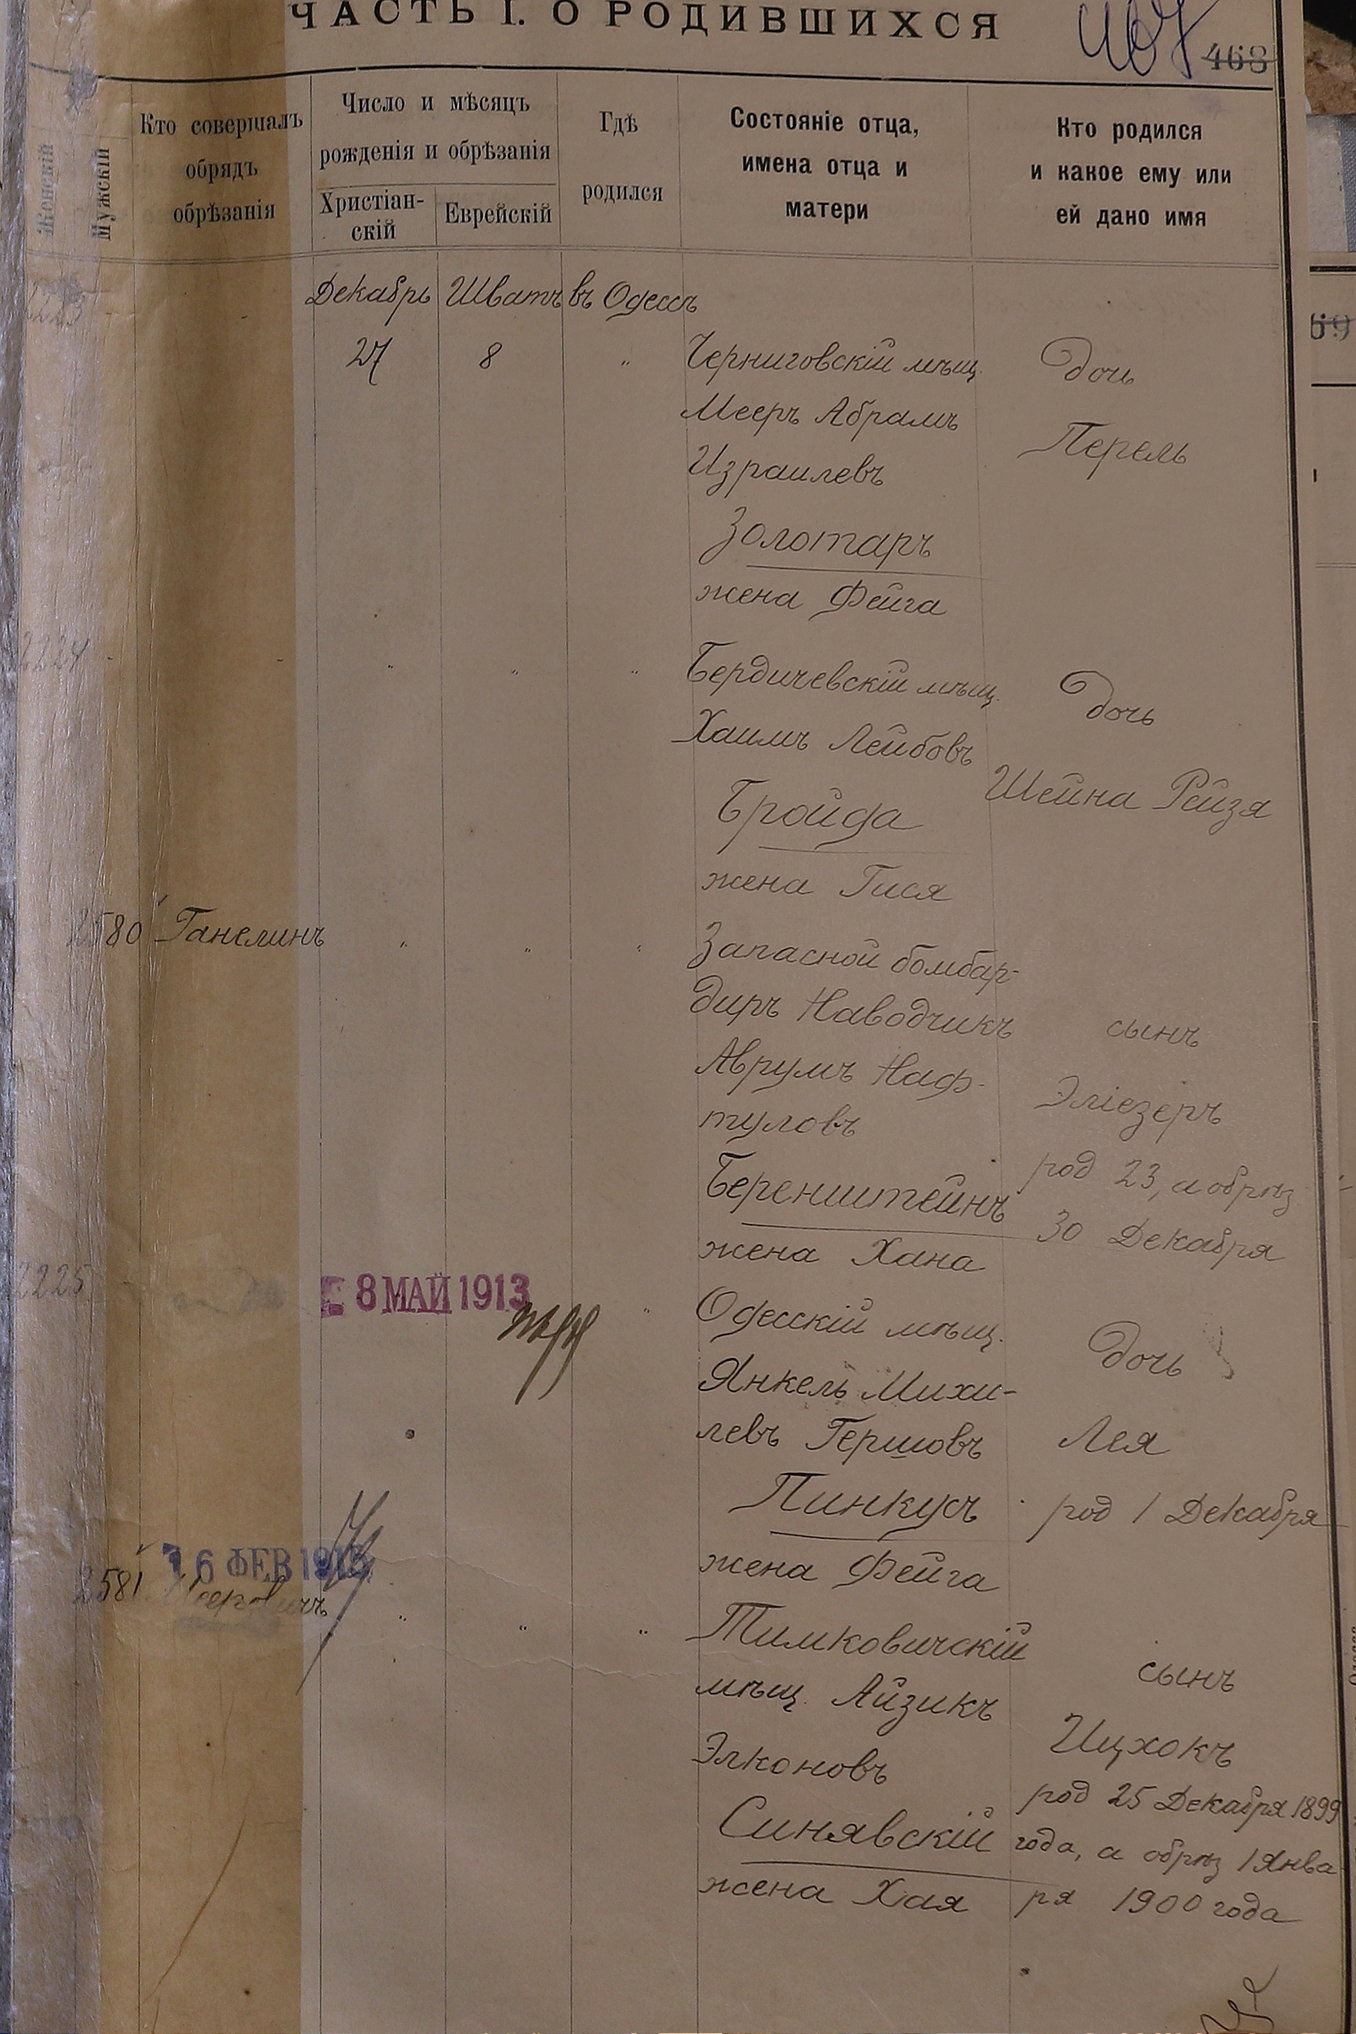 ЧАСТЬ I. О РОДИВШИХСЯ
407
468
Женскій
Мужскій
Кто совершалъ
обрядъ
обрѣзанія
Число и мѣсяцъ
рожденія и обрѣзанія
Христіан-
скій
Еврейскій
Гдѣ
родился
Состояніе отца,
имена отца и
матери
Кто родился
и какое ему или
ей дано имя
69
Декабрь Шватъ въ Одессѣ
2223
27 8 " Черниговскій мѣщ. дочь
Мееръ Абрамъ
Израилевъ
Перель
Золотаръ
жена Фейга
2224 " " " Бердичевскій мѣщ. дочь
Хаимъ Лейбовъ
Шейна Рейзя
Бройда
жена Гися
2580 Ганелинъ " " " Запасной бомбар-
диръ Наводчикъ сынъ
Аврумъ Наф-
туловъ
Эліезеръ
род 23, а обрѣз
30 Декабря
Беренштейнъ
жена Хана
2225 8 МАЙ 1913 " Одесскій мѣщ. дочь
Янкель Михи-
левъ Гершовъ Лея
Пинкусъ род 1 Декабря
жена Фейга
16 ФЕВ 1913
2581 Мееровичъ " " " Тимковичскій
мѣщ. Айзикъ сынъ
Элконовъ Ицхокъ
род 25 Декабря 1899
Синявскій года, а обрѣз 1 Янва
жена Хая ря 1900 года